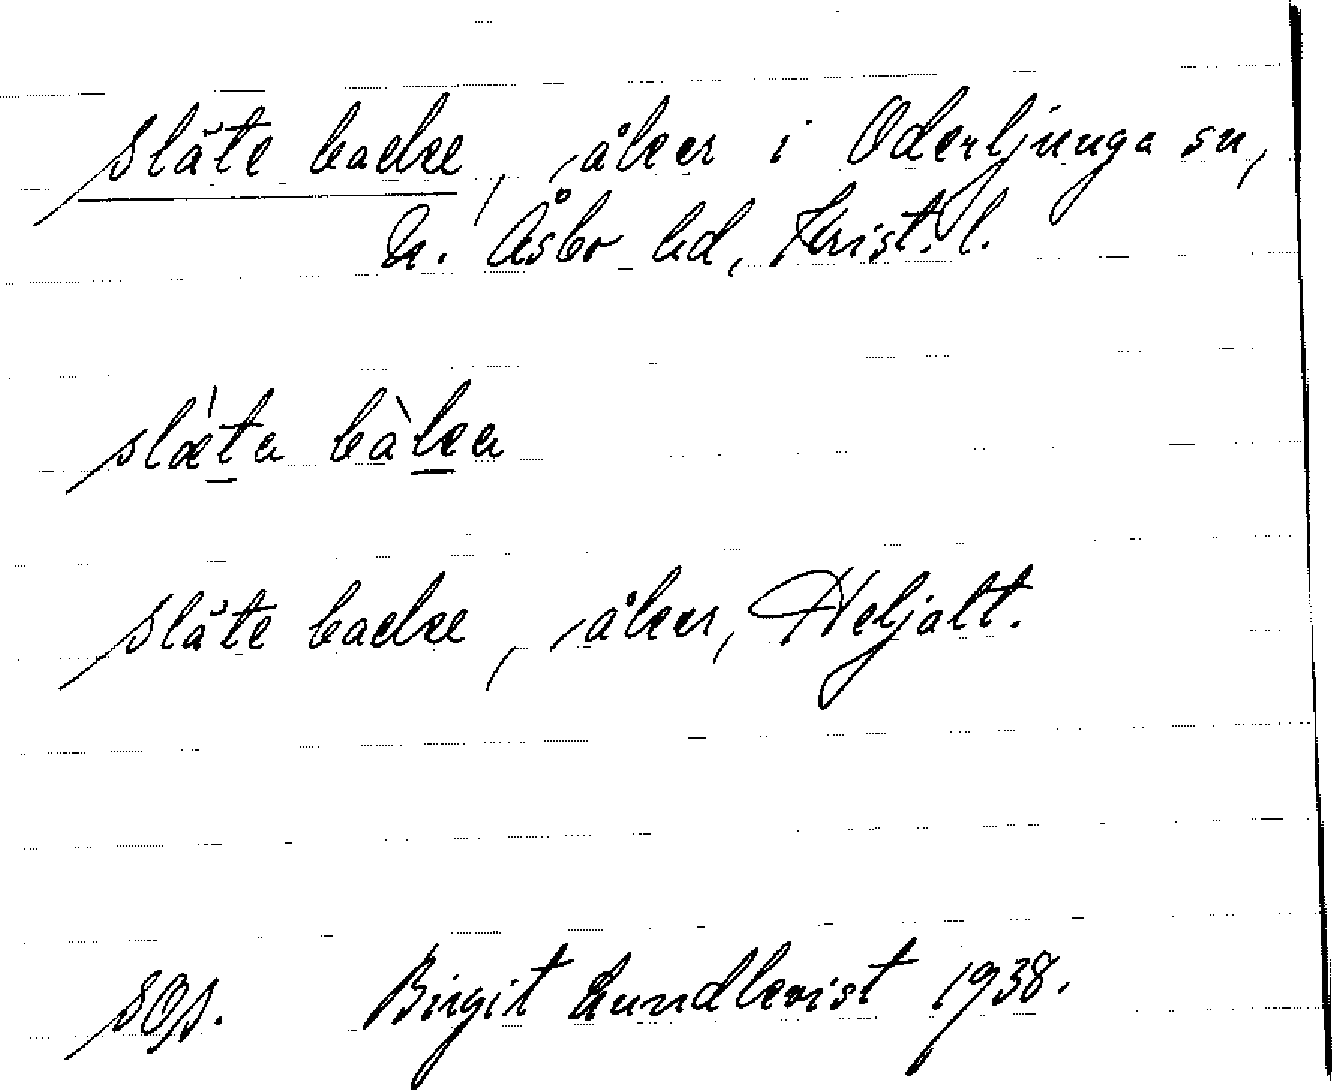 släte backe, åker i Oderljunga sn,
N. Åsbo hd, Krist. l.
slæ̍ta bàka
släte backe, åker, Heljalt.
sOs. Birgit Lundkvist 1938.